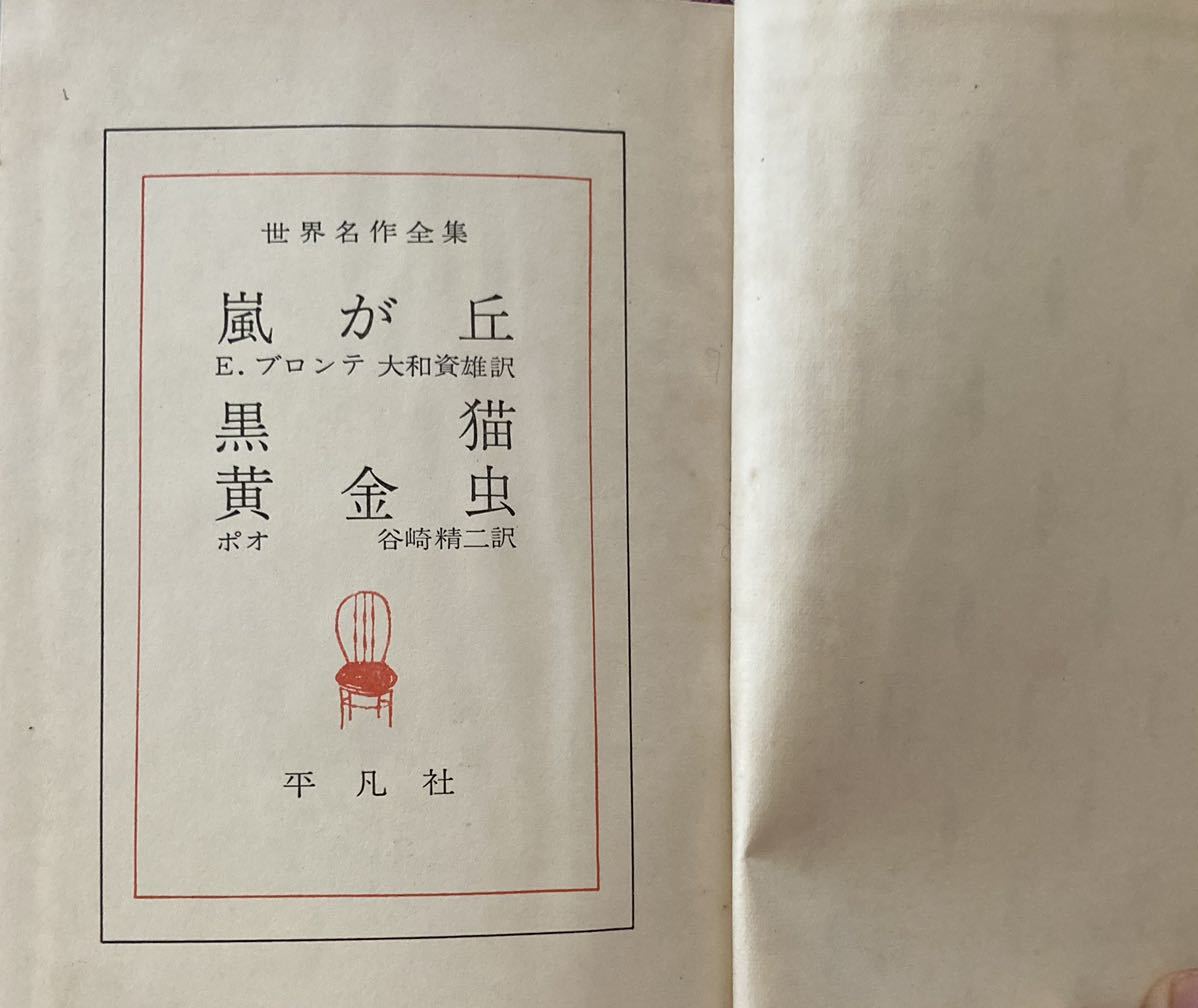 世界名作全集
嵐が丘
E.ブロンテ 大和資雄訳
黒猫
黄金虫
ポオ 谷崎精二訳
平凡社